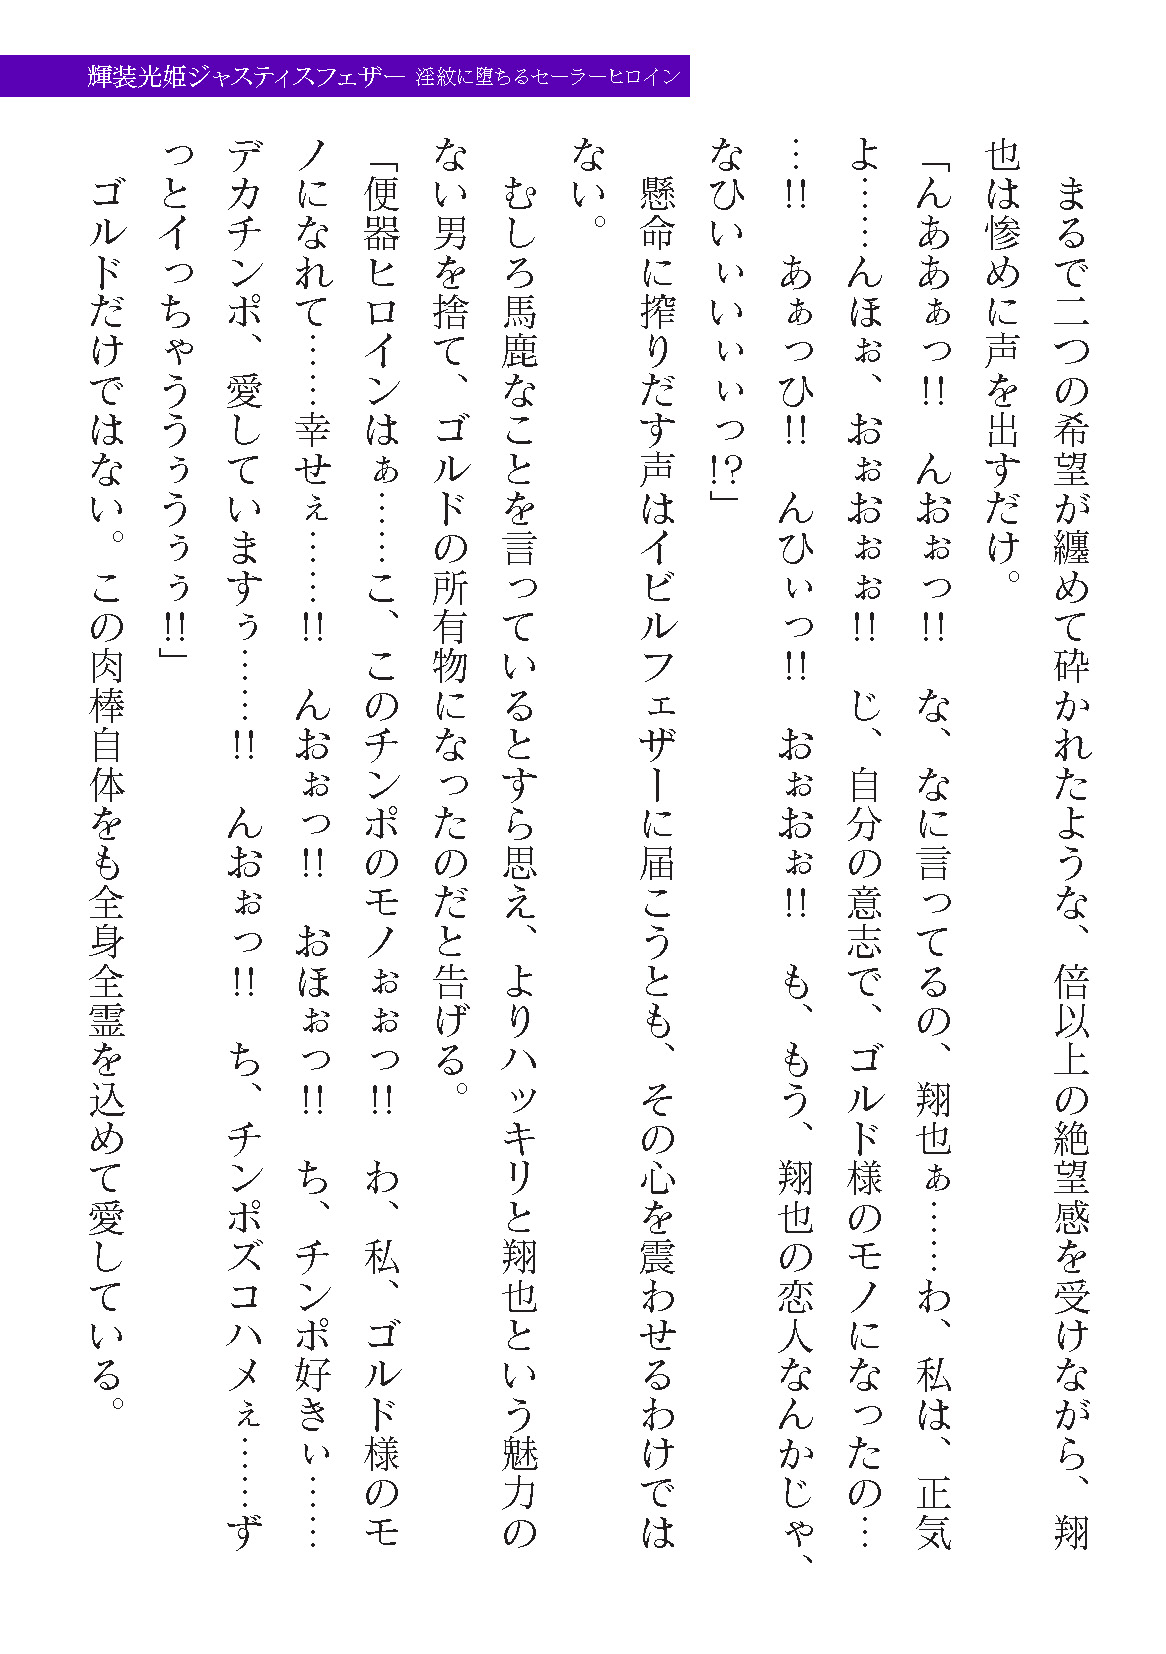 輝装光姫ジャスティスフェザー 淫紋に堕ちるセーラーヒロイン
　まるで二つの希望が纏めて砕かれたような、倍以上の絶望感を受けながら、翔
也は惨めに声を出すだけ。
「んああぁっ!!　んおぉっ!!　な、なに言ってるの、翔也ぁ……わ、私は、正気
よ……んほぉ、おぉおぉぉ!!　じ、自分の意志で、ゴルド様のモノになったの…
…!!　あぁっひ!!　んひぃっ!!　おぉおぉ!!　も、もう、翔也の恋人なんかじゃ、
なひいぃいぃぃっ!?」
　懸命に搾りだす声はイビルフェザーに届こうとも、その心を震わせるわけでは
ない。
　むしろ馬鹿なことを言っているとすら思え、よりハッキリと翔也という魅力の
ない男を捨て、ゴルドの所有物になったのだと告げる。
「便器ヒロインはぁ……こ、このチンポのモノぉぉっ!!　わ、私、ゴルド様のモ
ノになれて……幸せぇ……!!　んおぉっ!!　おほぉっ!!　ち、チンポ好きぃ……
デカチンポ、愛していますぅ……!!　んおぉっ!!　ち、チンポズコハメぇ……ず
っとイっちゃううぅうぅぅ!!」
　ゴルドだけではない。この肉棒自体をも全身全霊を込めて愛している。